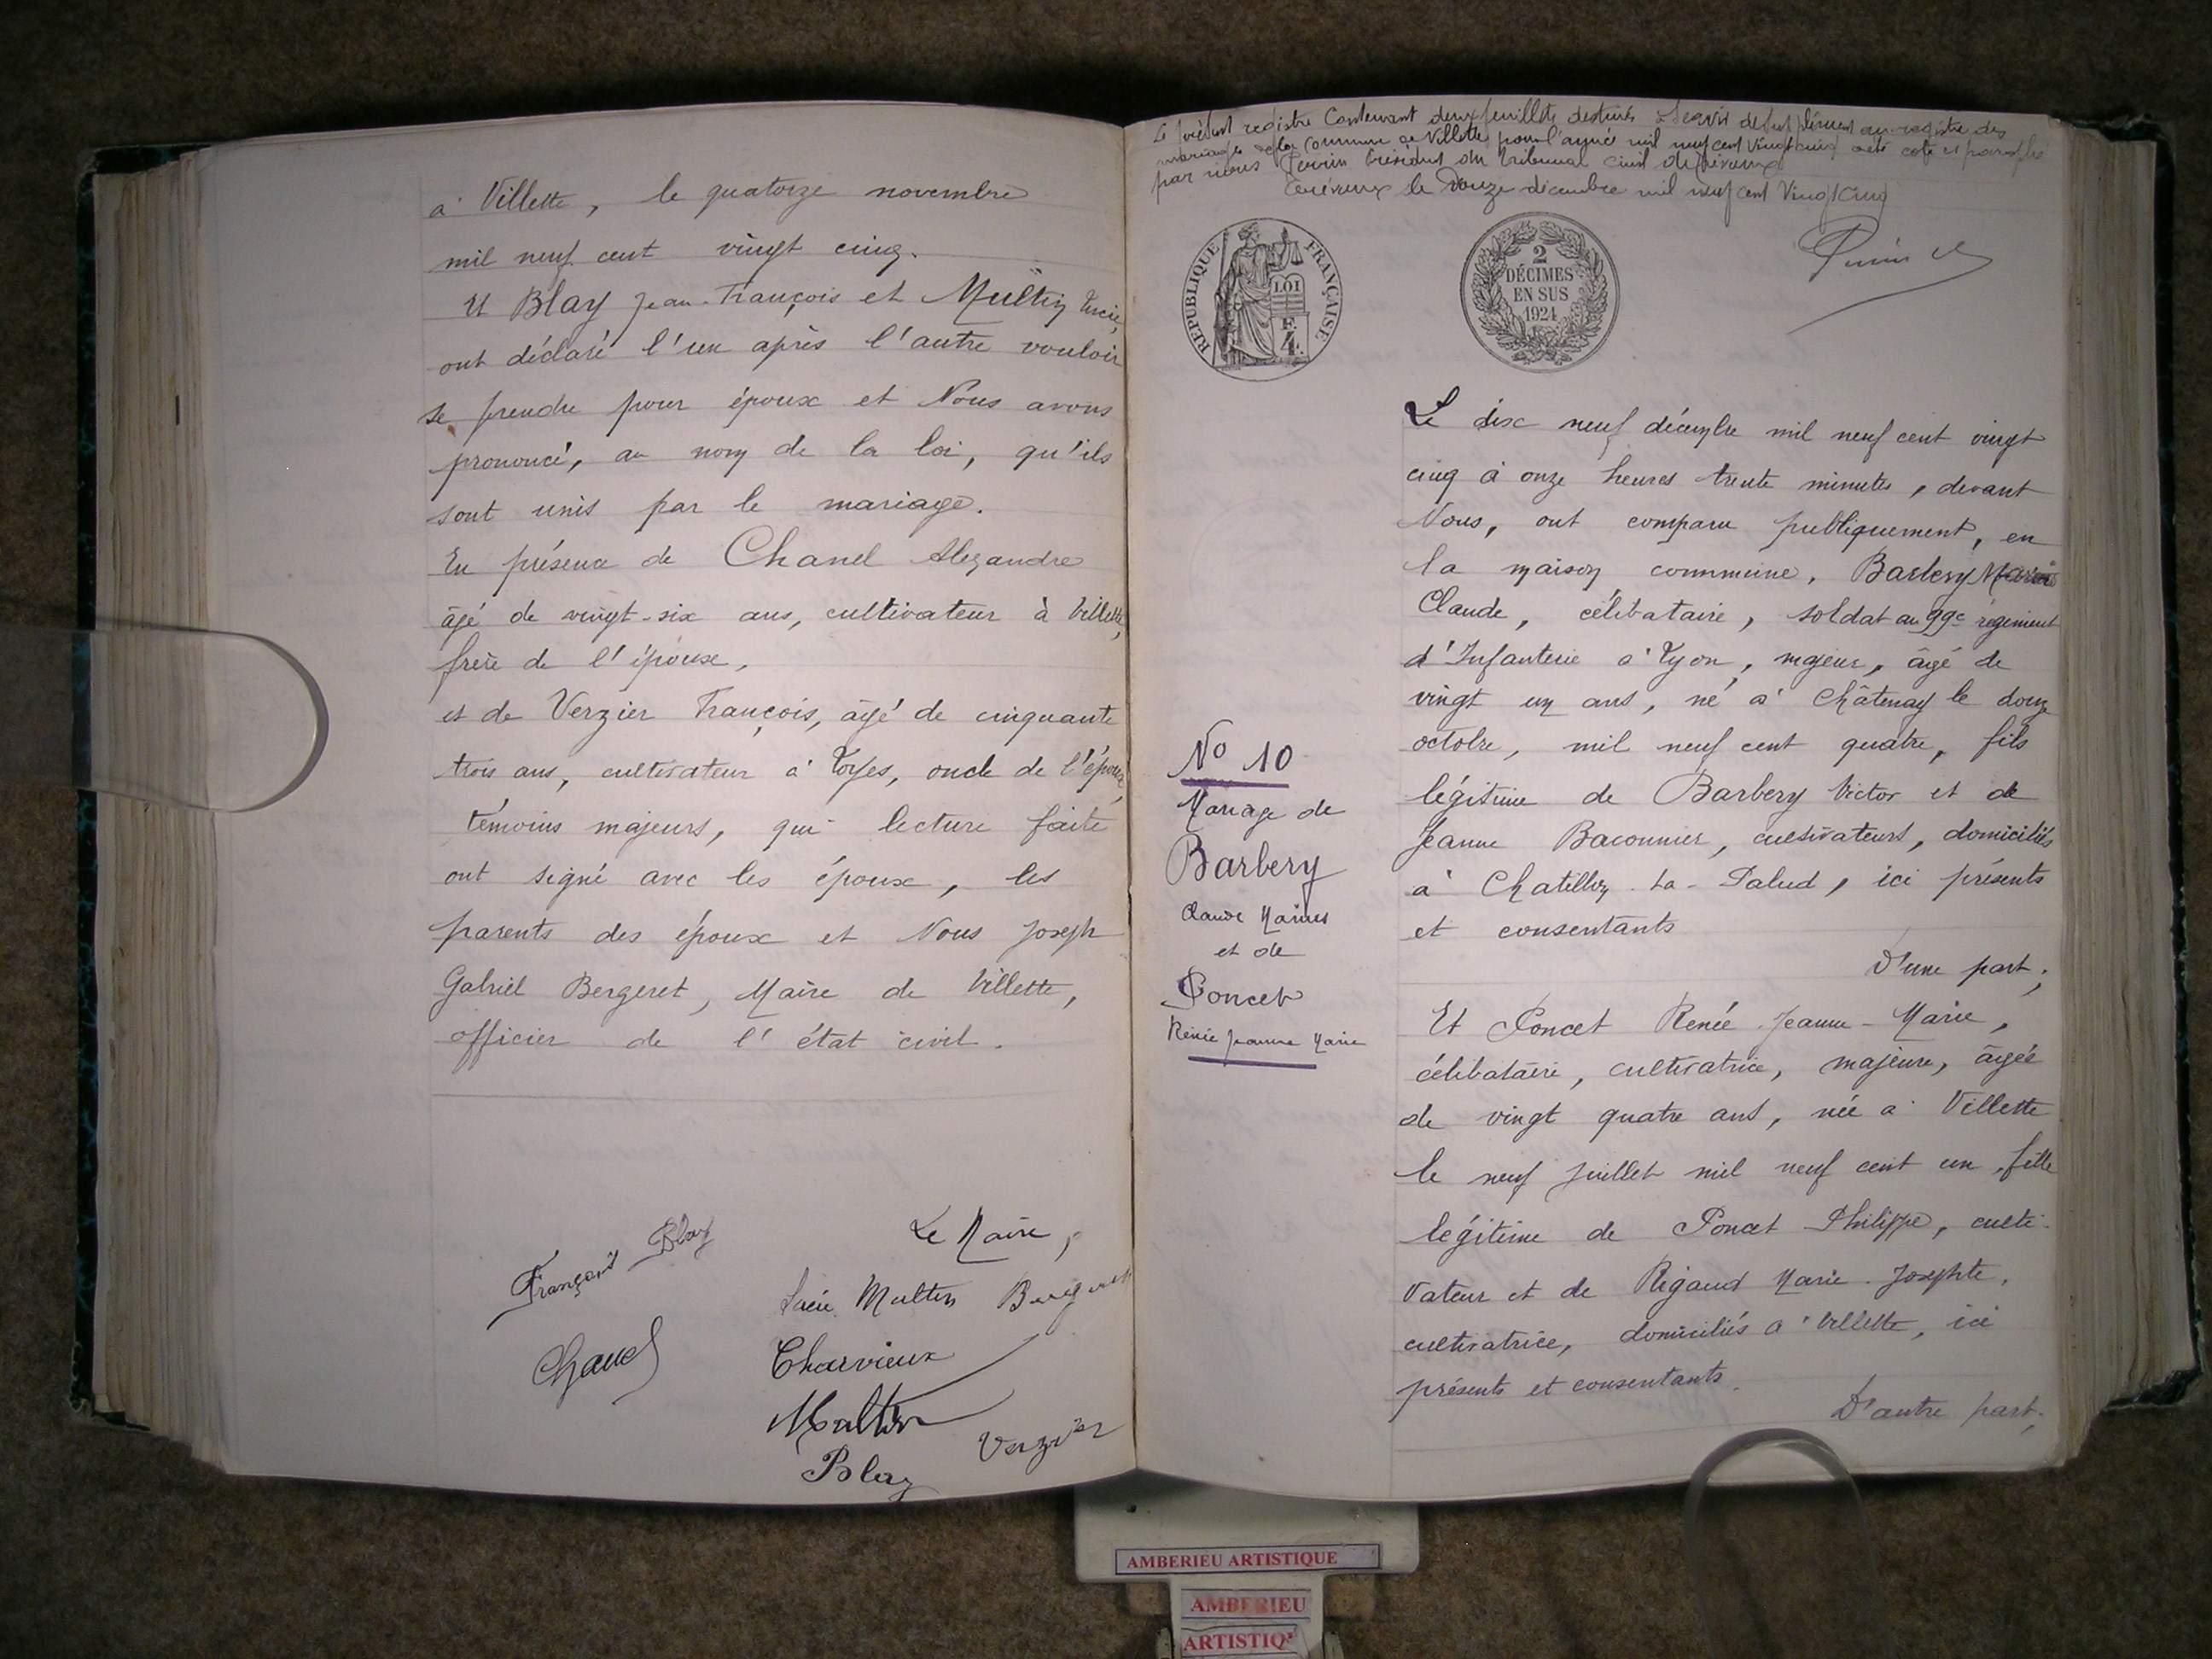 à Villette, le quatorze novembre
mil neuf cent vingt cinq.
Et Blay Jean-François et Multin Lucie,
ont déclaré l'un après l'autre vouloir
se prendre pour époux et Nous avons
prononcé, au nom de la loi, qu'ils
sont unis par le mariage.
En présence de Chanel Alexandre
âgé de vingt-six ans, cultivateur à Villette,
frère de l'épouse,
et de Verzier François, âgé de cinquante
trois ans, cultivateur à Loyes, oncle de l'époux,
témoins majeurs, qui lecture faite
ont signé avec les époux, les
parents des époux et Nous Joseph
Gabriel Bergeret, Maire de Villette,
officier de l'état civil.
Le Maire,
François Blay
Lucie Multin Bergeret
Chanel
Charvieux
Multin
Verzier
Blay
Le présent registre Contenant deux feuillets destinés à servir de supplément au registre des
mariages de la Commune de Villette pour l'année mil neuf cent vingt cinq a été coté et paraphé
par nous Perrin Président du Tribunal Civil de Trévoux
Trévoux le Douze décembre mil neuf cent Vingt Cinq
REPUBLIQUE FRANÇAISE
LOI
E.
4.
2
DÉCIMES
EN SUS
1924
Perrin
No 10
Mariage de
Barbery
Claude Marius
et de
Poncet
Renée Jeanne Marie
Le dix neuf décembre mil neuf cent vingt
cinq à onze heures trente minutes, devant
Nous, ont comparu publiquement, en
la maison commune, Barbery Marius
Claude, célibataire, soldat au 99e régiment
d'Infanterie à Lyon, majeur, âgé de
vingt un ans, né à Châtenay le douze
octobre, mil neuf cent quatre, fils
légitime de Barbery Victor et de
Jeanne Baconnier, cultivateurs, domiciliés
à Chatillon-La-Palud, ici présents
et consentants
D'une part;
Et Poncet Renée-Jeanne-Marie,
célibataire, cultivatrice, majeure, âgée
de vingt quatre ans, née à Villette
le neuf juillet mil neuf cent un, fille
légitime de Poncet Philippe, culti-
vateur et de Rigaud Marie-Josephte,
cultivatrice, domiciliés à Villette, ici
présents et consentants.
D'autre part;
AMBERIEU ARTISTIQUE
AMBERIEU
ARTISTIQ